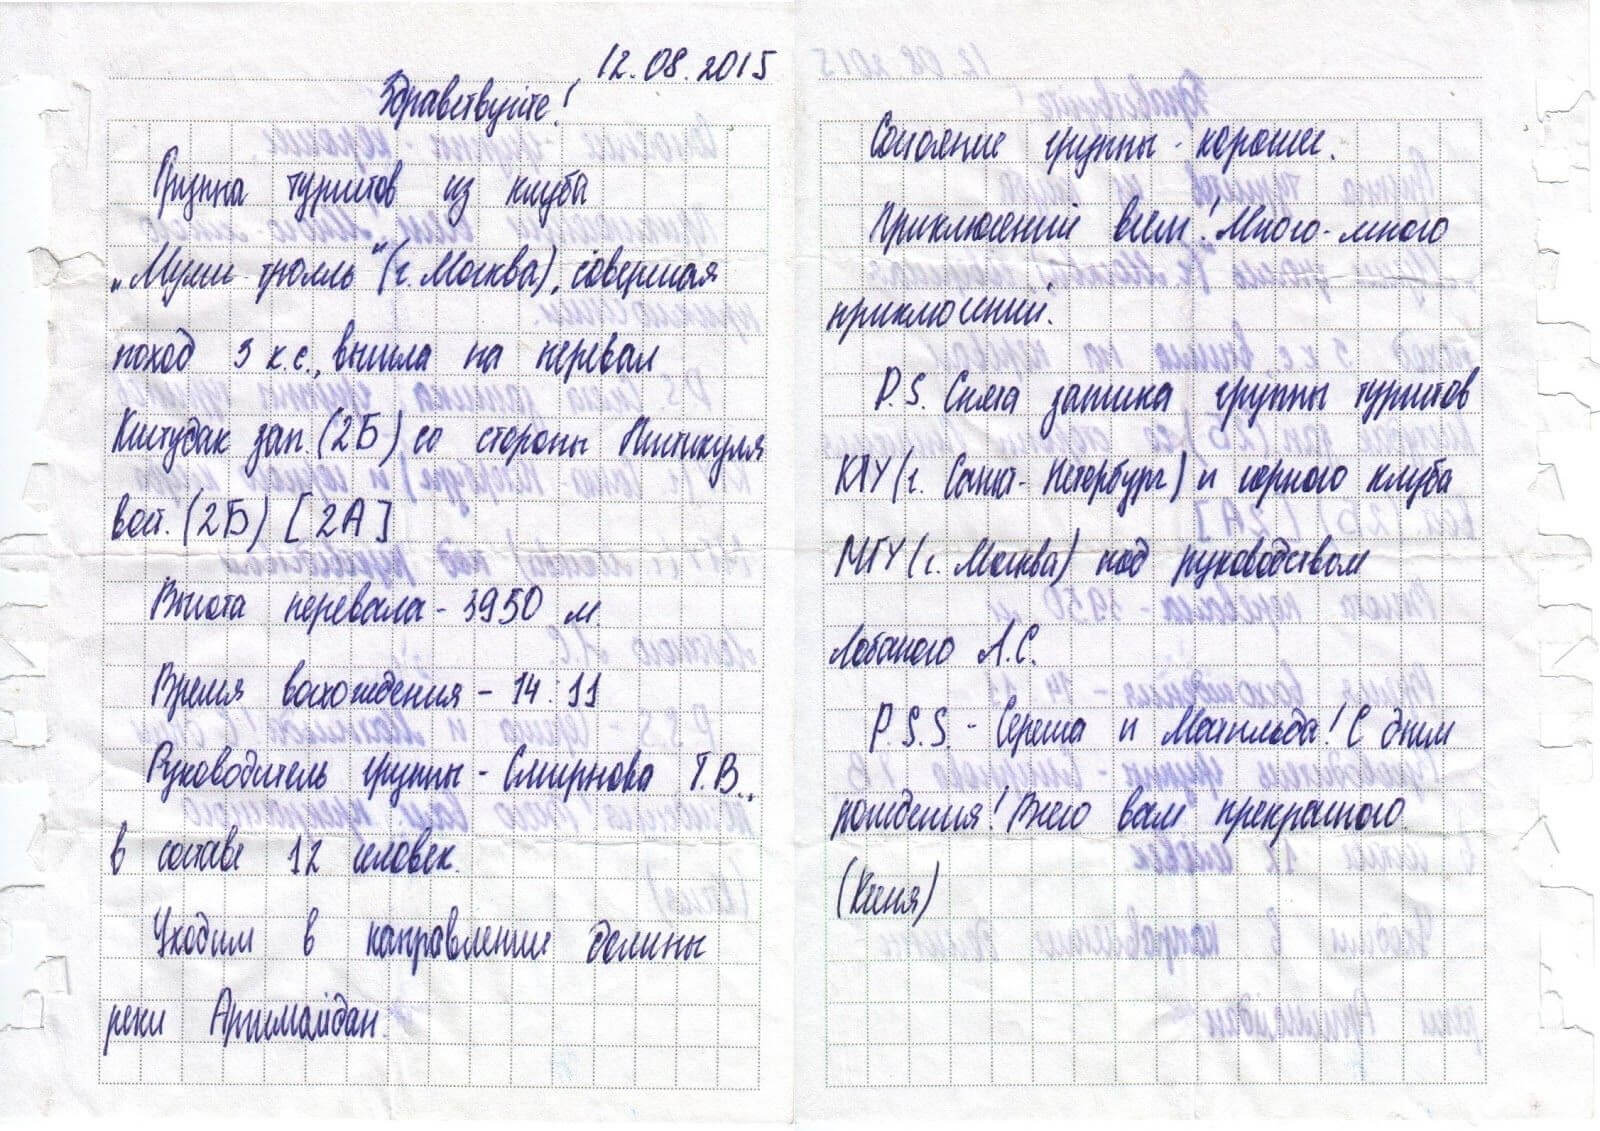 12.08.2015
Здравствуйте!
Группа туристов из клуба
„Муми-тролль“ (г. Москва), совершая
поход 3 к.с., вышла на перевал
Киштудак зап. (2Б) со стороны Пиштикуля
вост. (2Б) [2А]
Высота перевала - 3950 м
Время восхождения - 14:11
Руководитель группы - Смирнова Т.В.,
в составе 12 человек.
Уходим в направление долины
реки Арчимайдан.
Состояние группы - хорошее.
Приключений всем! Много-много
приключений.
P.S. Снята записка группы туристов
КПУ (г. Санкт-Петербург) и горного клуба
МГУ (г. Москва) под руководством
Лобаного А.С.
P.S.S. - Сережа и Матильда! С днем
рождения! Всего вам прекрасного.
(Ксеня)